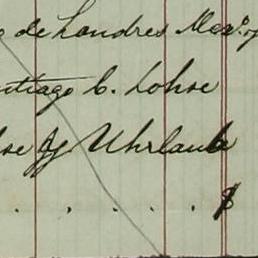 de Landres Mexo. y
ntiago C. Lohse
se Jy Uhrlaub
$